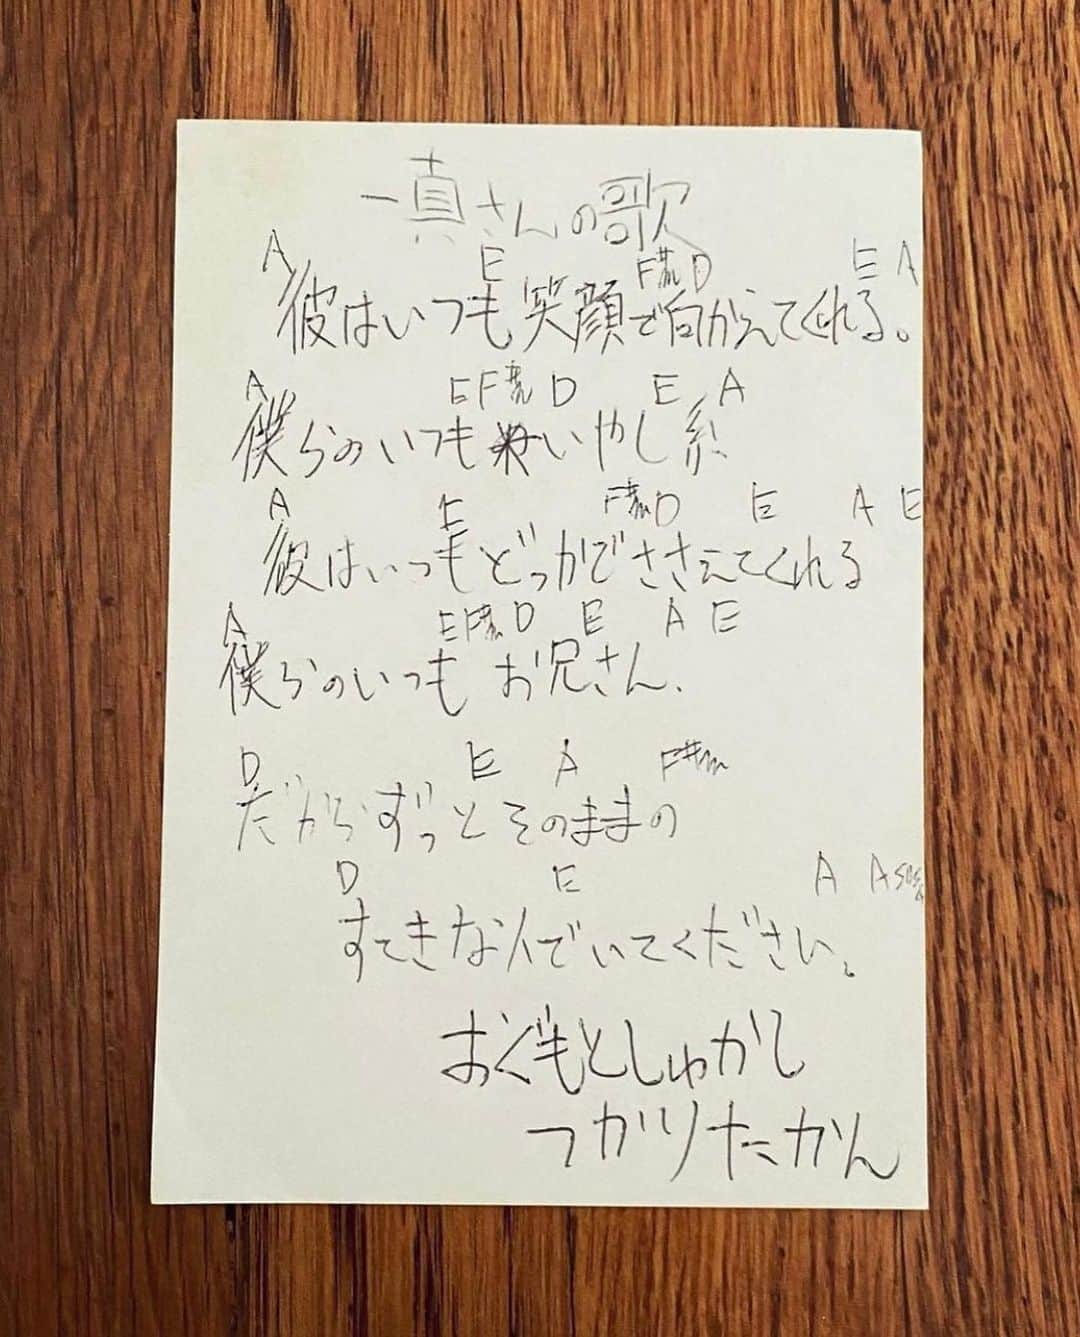 一真さんの歌
A E F#m D E A
彼はいつも笑顔で向かえてくれる。
A E F#m D E A
僕らのいつもいやし系
A E F#m D E A E
彼はいつもどっかでささえてくれる
A E F#m D E A E
僕らのいつもお兄さん、
D E A F#m
だからずっとそのままの
D E A
すてきな人でいてください。
おぐもとしゅかし
つかりたかん